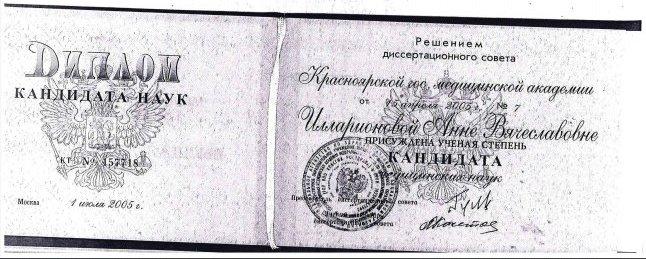 ДИПЛОМ
КАНДИДАТА НАУК
КТ № 157718
Москва 1 июля 2005 г.
Решением
диссертационного совета
Красноярской гос. медицинской академии
от 15 апреля 2005 г. № 7
Илларионовой Анне Вячеславовне
ПРИСУЖДЕНА УЧЕНАЯ СТЕПЕНЬ
КАНДИДАТА
медицинских наук
Председатель диссертационного совета
диссертационного совета